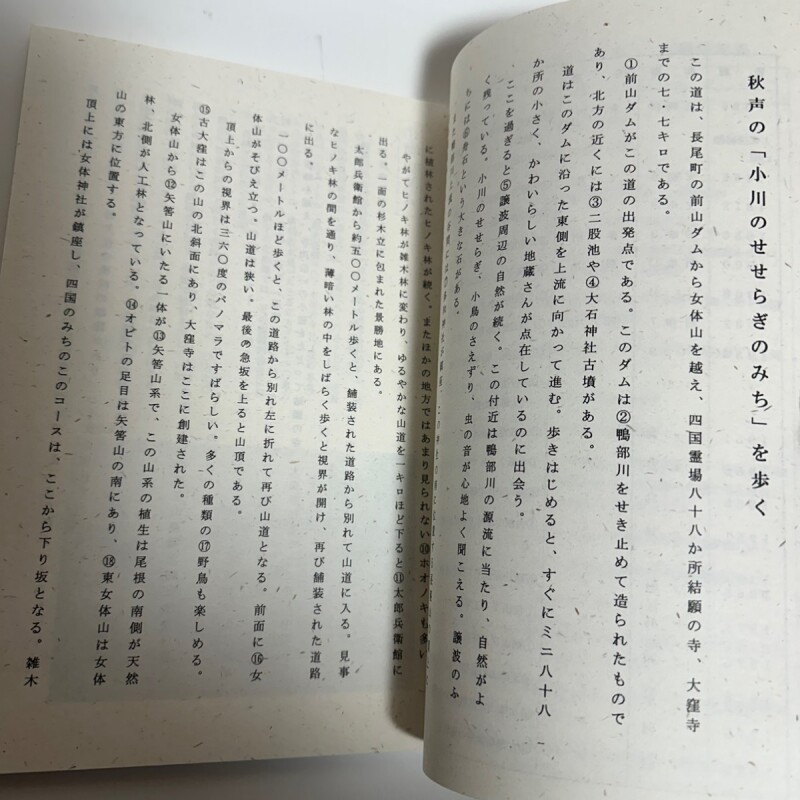 秋声の「小川のせせらぎのみち」を歩く
この道は、長尾町の前山ダムから女体山を越え、四国霊場八十八か所結願の寺、大窪寺
までの七・七キロである。
①前山ダムがこの道の出発点である。このダムは②鴨部川をせき止めて造られたもので
あり、北方の近くには③二股池や④大石神社古墳がある。
道はこのダムに沿った東側を上流に向かって進む。歩きはじめると、すぐにミニ八十八
か所の小さく、かわいらしい地蔵さんが点在しているのに出会う。
ここを過ぎると⑤譲波周辺の自然が続く。この付近は鴨部川の源流に当たり、自然がよ
く残っている。小川のせせらぎ、小鳥のさえずり、虫の音が心地よく聞こえる。譲波のふ
という大きな石がある。
に植林されたヒノキ林が続く。またほかの地方ではあまり見られない⑩ホオノキも多い
やがてヒノキ林が雑木林に変わり、ゆるやかな山道を一キロほど下ると⑪太郎兵衛館に
出る。一面の杉木立に包まれた景勝地にある。
太郎兵衛館から約五〇〇メートル歩くと、舗装された道路から別れて山道に入る。見事
なヒノキ林の間を通り、薄暗い林の中をしばらく歩くと視界が開け、再び舗装された道路
に出る。
一〇〇メートルほど歩くと、この道路から別れ左に折れて再び山道となる。前面に⑯女
体山がそびえ立つ。山道は狭い。最後の急坂を上ると山頂である。
頂上からの視界は三六〇度のパノマラですばらしい。多くの種類の⑰野鳥も楽しめる。
⑮古大窪はこの山の北斜面にあり、大窪寺はここに創建された。
女体山から⑫矢筈山にいたる一体が⑬矢筈山系で、この山系の植生は尾根の南側が天然
林、北側が人工林となっている。⑭オビトの足目は矢筈山の南にあり、⑱東女体山は女体
山の東方に位置する。
頂上には女体神社が鎮座し、四国のみちのこのコースは、ここから下り坂となる。雑木